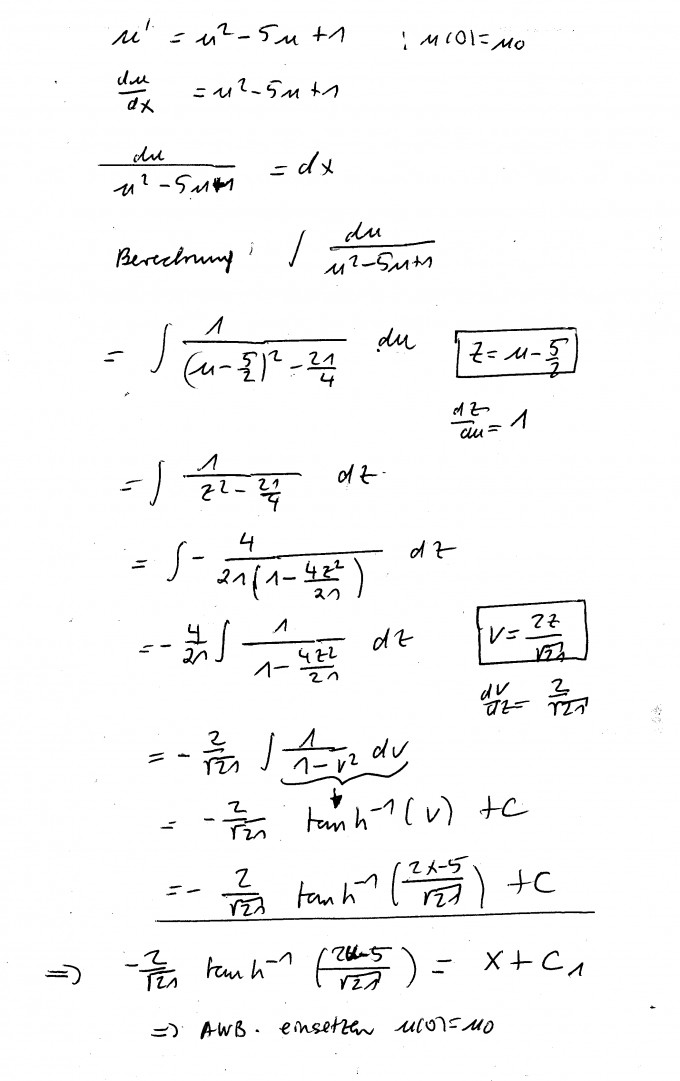 u' = u² - 5u + 1 ; u(0) = u0
du/dx = u² - 5u + 1
du/(u² - 5u + 1) = dx
Berechnung: ∫ du/(u² - 5u + 1)
= ∫ 1/((u - 5/2)² - 21/4) du z = u - 5/2
dz/du = 1
= ∫ 1/(z² - 21/4) dz
= ∫ - 4/(21(1 - 4z²/21)) dz
= - 4/21 ∫ 1/(1 - 4z²/21) dz v = 2z/√21
dv/dz = 2/√21
= - 2/√21 ∫ 1/(1 - v²) dv
= - 2/√21 tanh⁻¹(v) + C
= - 2/√21 tanh⁻¹((2x-5)/√21) + C
⇒ - 2/√21 tanh⁻¹((2u-5)/√21) = x + C₁
⇒ AWB. einsetzen u(0) = u0